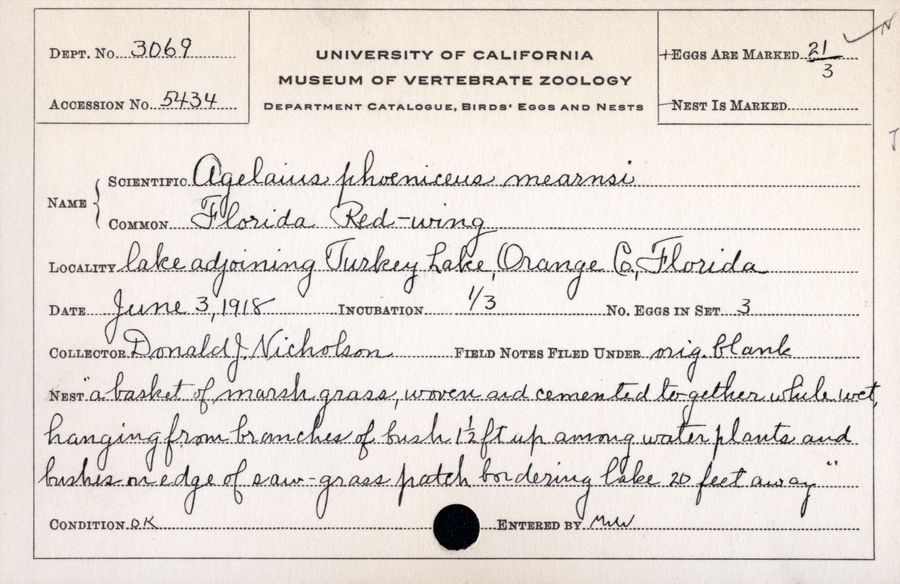 Dept. No. 3069
Accession No. 5434
UNIVERSITY OF CALIFORNIA
MUSEUM OF VERTEBRATE ZOOLOGY
Department Catalogue, Birds' Eggs and Nests
Eggs Are Marked 21/3
Nest Is Marked
Name
Scientific Agelaius phoeniceus mearnsi
Common Florida Red-wing
Locality lake adjoining Turkey Lake, Orange Co, Florida
Date June 3, 1918 Incubation 1/3 No. Eggs in Set 3
Collector Donald J. Nicholson Field Notes Filed Under orig. blank
Nest "a basket of marsh grass, woven and cemented together while wet,
hanging from branches of bush 1½ ft up among water plants and
bushes on edge of saw-grass patch bordering lake 20 feet away"
Condition OK Entered by